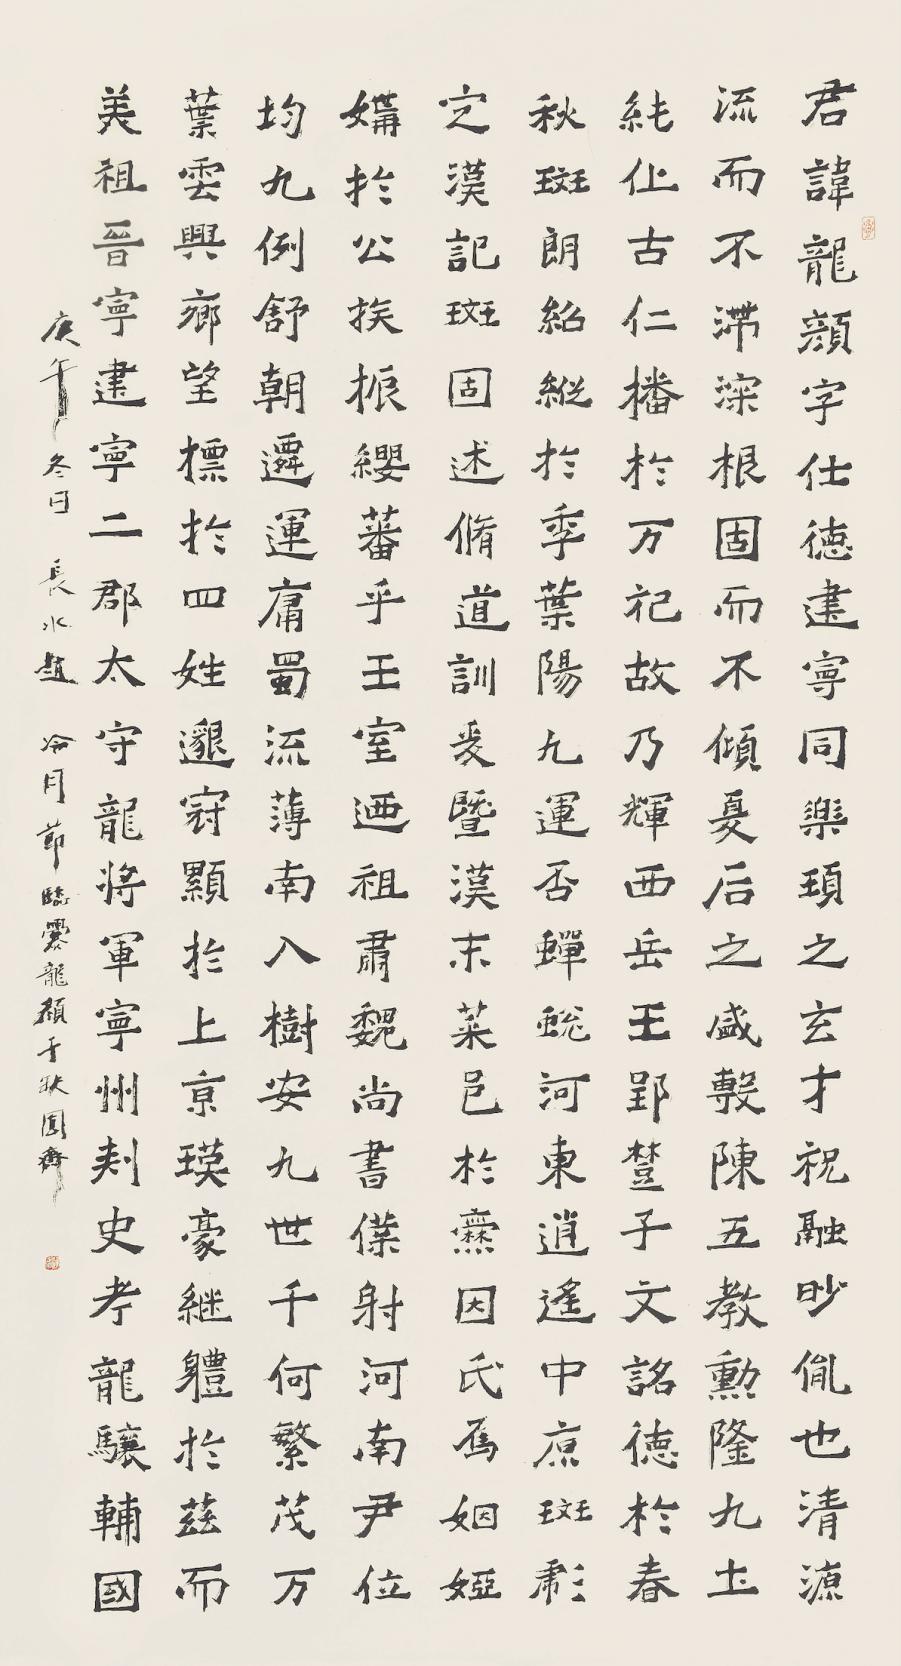 君諱龍顔字仕德建寧同樂頊之玄才祝融眇胤也清源
流而不滯深根固而不傾夏后之盛敷陳五教勳隆九土
純化古仁播於万祀故乃輝西岳王郢楚子文詺德於春
秋斑朗紹縱於季葉陽九運否蟬蛻河東逍遙中原斑彪
定漢記斑固述脩道訓爰暨漢末菜邑於爨因氏焉姻婭
媾於公族振纓蕃乎王室迺祖肅魏尚書僕射河南尹位
均九例舒朝遷運庸蜀流薄南入樹安九世千何繁茂万
葉雲興鄉望標於四姓邈冠顯於上京瑛豪継體於茲而
美祖晉寧建寧二郡太守龍將軍寧州刺史考龍驤輔國
庚午冬日 長水趙冷月節臨爨龍顏於秋圓齋